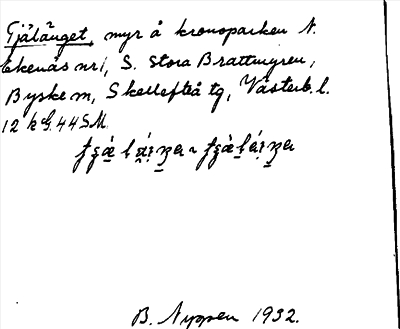 Tjälänget, myr å kronoparken N.
Ekenäs nr 1, S. Stora Brattmyren,
Byske m, Skellefteå tg, Västerb. l.
12 k G. 44 SM
B. Nyppen 1932.